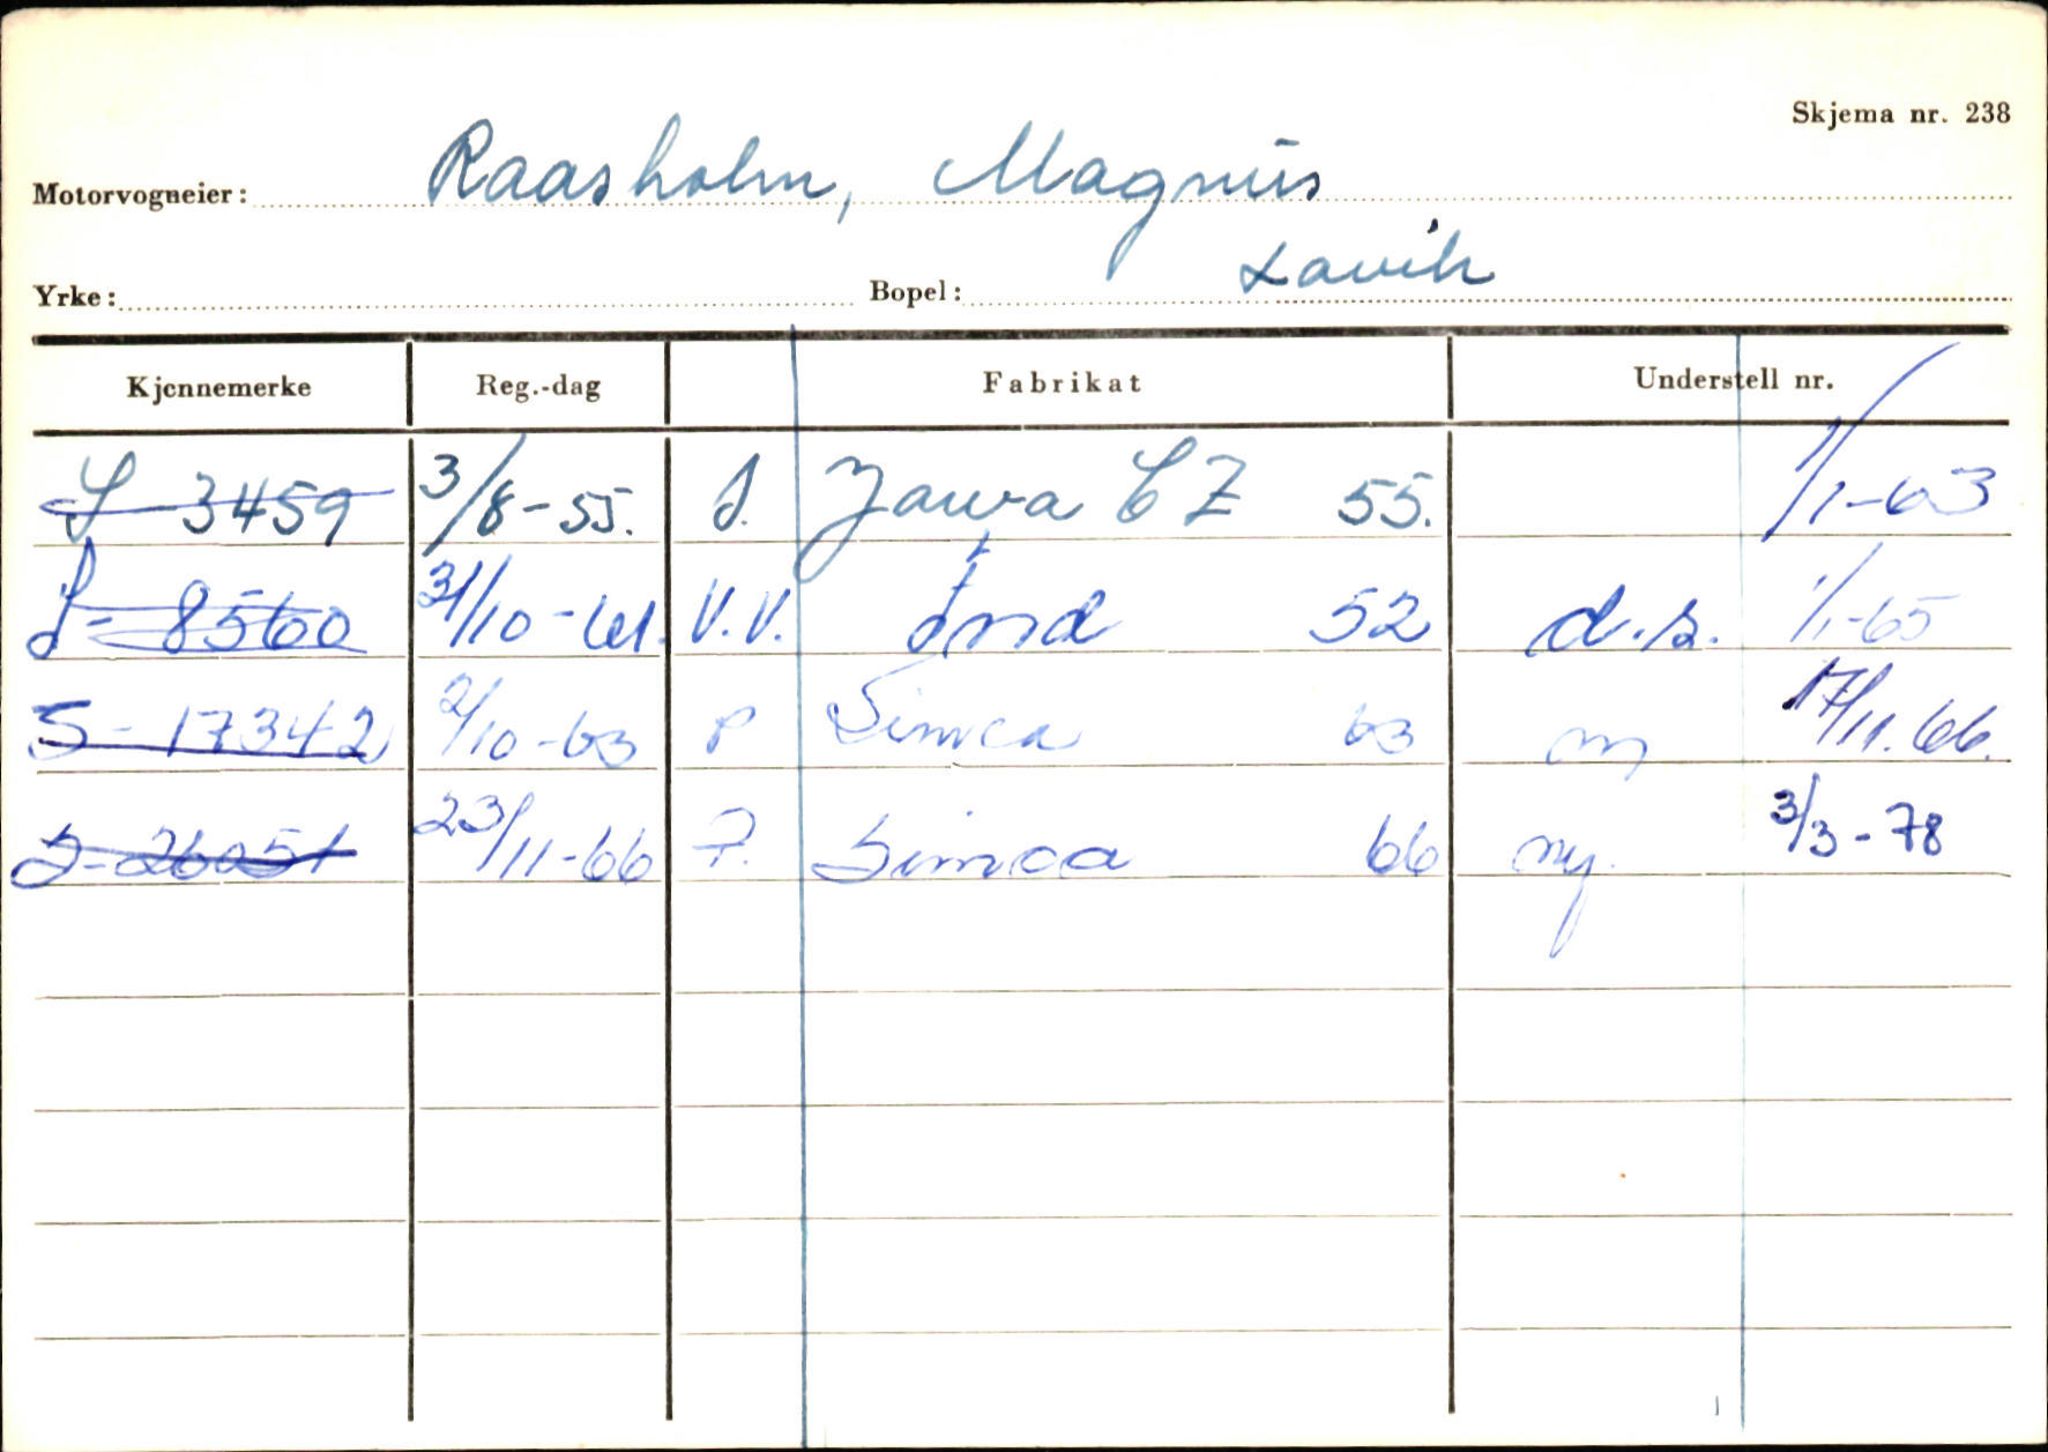 Skjema nr. 238
Motorvogneier: Raasholm, Magnus
Yrke: Bopel: Lavik
Kjennemerke Reg.-dag Fabrikat Understell nr.
S 3459 3/8-55. S. Jawa CZ 55. 1/1-63
S- 8560 31/10-61. V.V. Ford 52 1/1-65
S- 17342 2/10-63 P Simca 63 17/11.66.
S-26051 23/11-66 P. Simca 66 ny. 3/3-78